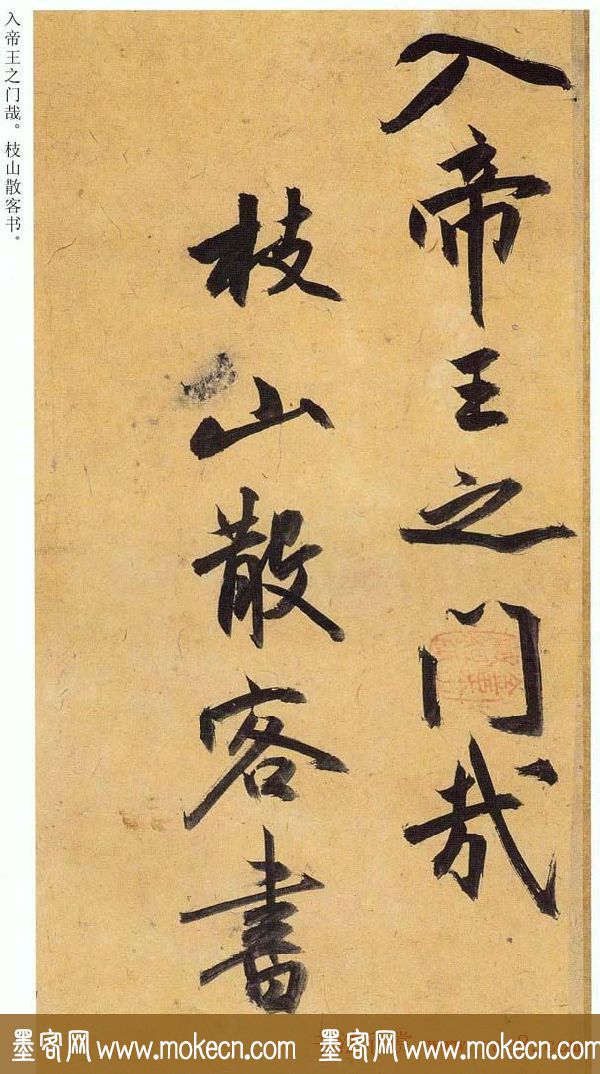 入帝王之门哉。枝山散客书。
入帝王之门哉
枝山散客書
墨客网 www.mokecn.com 墨客网 www.mokecn.com